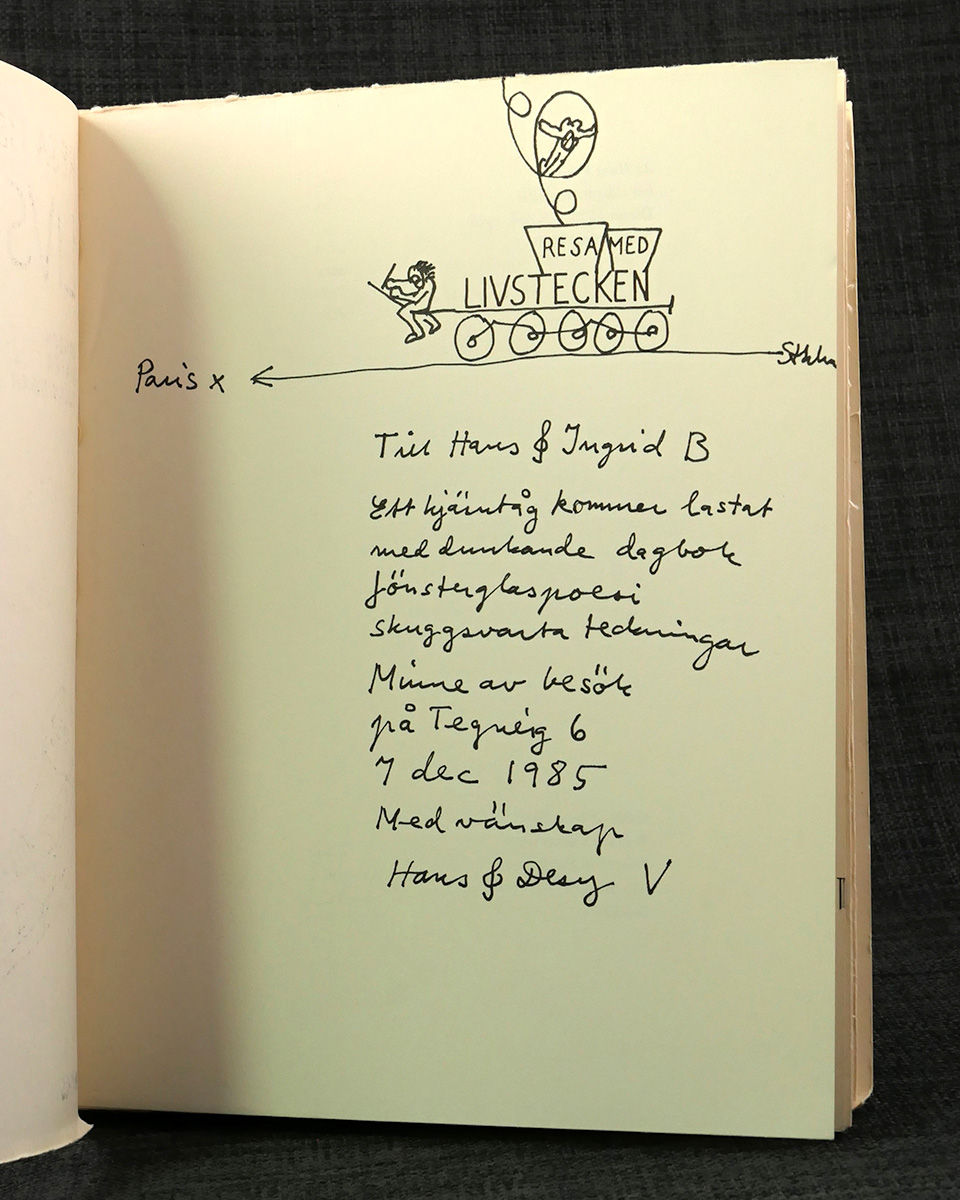 RESA MED
LIVSTECKEN
Paris x
Sthlm
Till Hans & Ingrid B
Ett hjärntåg kommer lastat
med dunkande dagbok
fönsterglaspoesi
skuggsvarta teckningar
Minne av besök
på Tegnérg 6
7 dec 1985
Med vänskap
Hans & Desy V